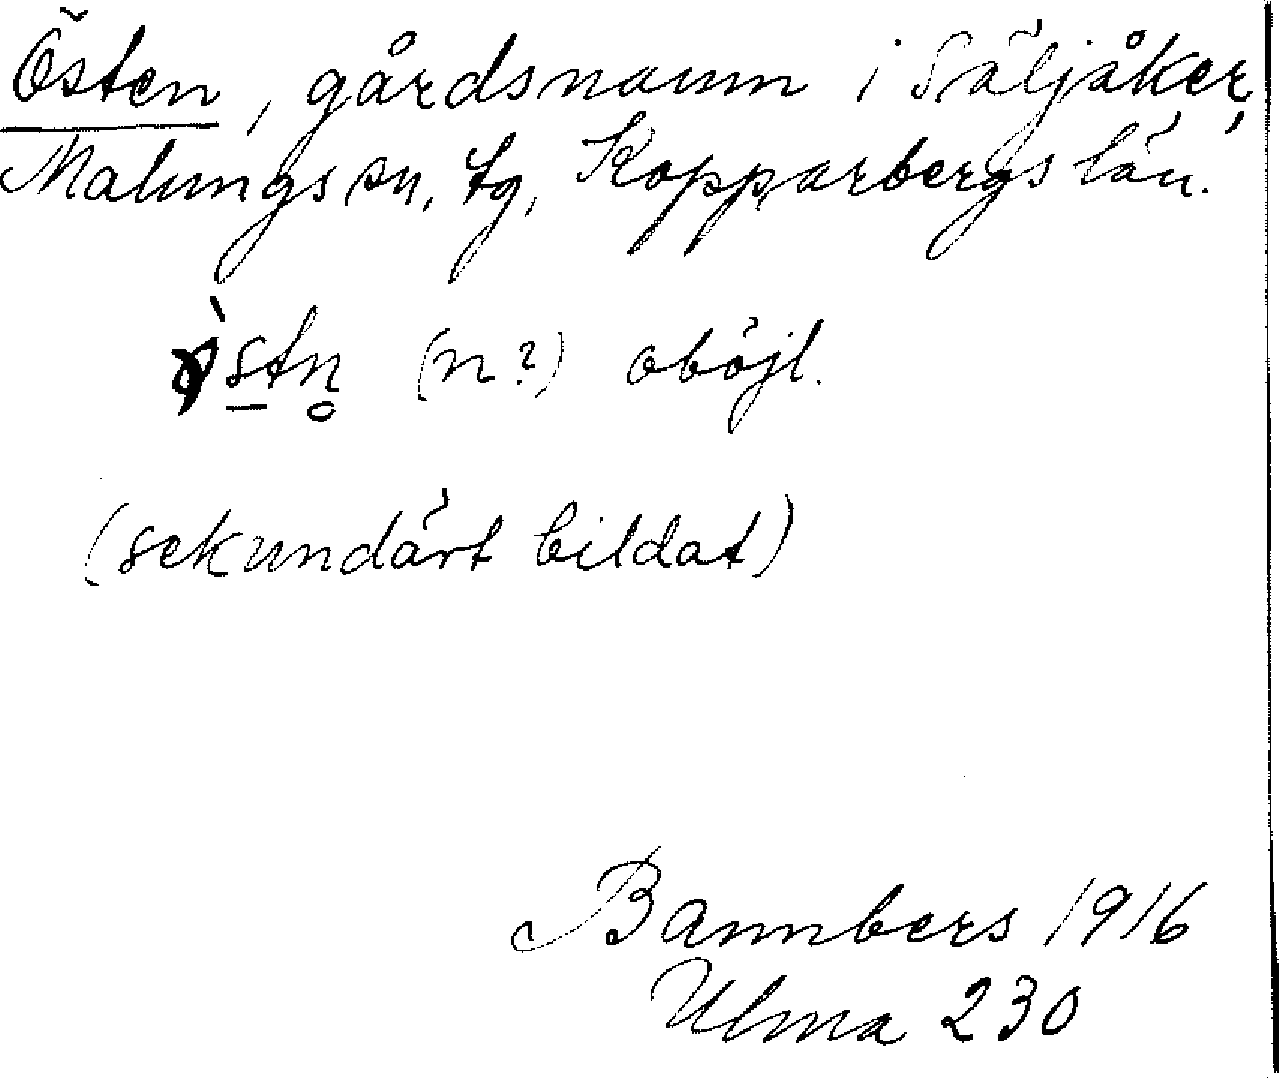 Östen, gårdsnamn i Säljåker,
Malungs sn, tg, Kopparbergs län.
(n?) oböjl.
(sekundärt bildat)
Bannbers 1916
Ulma 230